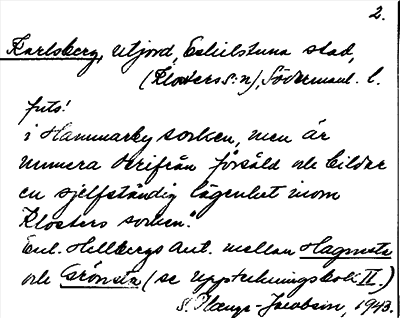 2.
Karlsberg, utjord, Eskilstuna stad,
(Klosters s:n), Södermanl. l.
forts!
i Hammarby socken, men är
numera derifrån försåld och bildar
en sjelfständig lägenhet inom
Klosters socken."
Enl. Hellbergs Ant. mellan Hagnesta
och Grönsta (se uppteckningsbok II.)
S. Plænge-Jacobson, 1943.